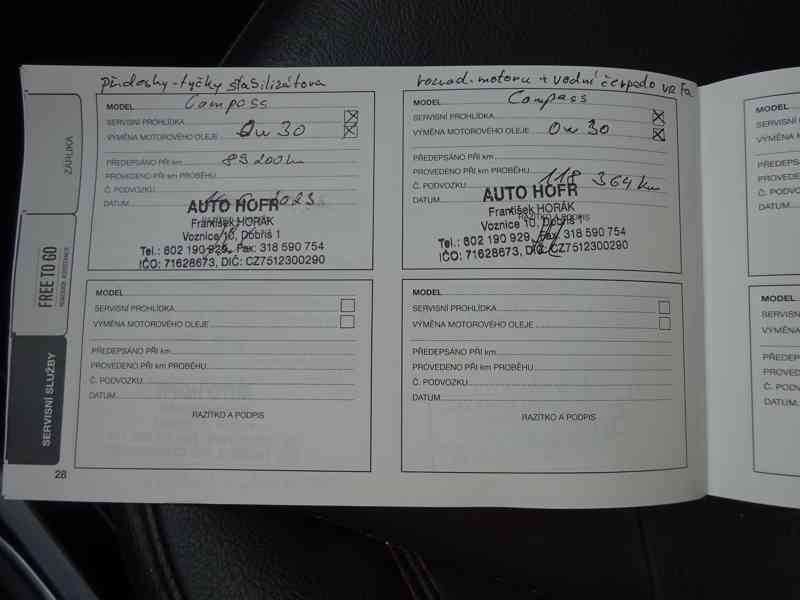 ZÁRUKA
FREE TO GO
SERVISNÍ SLUŽBY
28
tyčky stabilizátoru
MODEL Compass
SERVISNÍ PROHLÍDKA
VÝMĚNA MOTOROVÉHO OLEJE 0w30
PŘEDEPSÁNO PŘI km 89200km
PROVEDENO PŘI km PROBĚHU
Č. PODVOZKU
DATUM 2023
RAZÍTKO A PODPIS
AUTO HOFR
František HORÁK
Voznice 10, Dobříš 1
Tel.: 602 190 929, Fax: 318 590 754
IČO: 71628673, DIČ: CZ7512300290
rozvod. motoru + vodní čerpadlo
MODEL Compass
SERVISNÍ PROHLÍDKA
VÝMĚNA MOTOROVÉHO OLEJE 0w30
PŘEDEPSÁNO PŘI km
PROVEDENO PŘI km PROBĚHU
Č. PODVOZKU 118 364 km
DATUM
RAZÍTKO A PODPIS
AUTO HOFR
František HORÁK
Voznice 10, Dobříš 1
Tel.: 602 190 929, Fax 318 590 754
IČO: 71628673, DIČ: CZ7512300290
MODEL
SERVISNÍ PROHLÍDKA
VÝMĚNA MOTOROVÉHO OLEJE
PŘEDEPSÁNO PŘI km
PROVEDENO PŘI km PROBĚHU
Č. PODVOZKU
DATUM
RAZÍTKO A PODPIS
MODEL
SERVISNÍ PROHLÍDKA
VÝMĚNA MOTOROVÉHO OLEJE
PŘEDEPSÁNO PŘI km
PROVEDENO PŘI km PROBĚHU
Č. PODVOZKU
DATUM
RAZÍTKO A PODPIS
MODEL
SERVISNÍ
VÝMĚNA
PŘEDEPS
PROVEDE
Č. PODVO
DATUM
MODEL
SERVISN
VÝMĚNA
PŘEDEP
PROVED
Č. PODV
DATUM